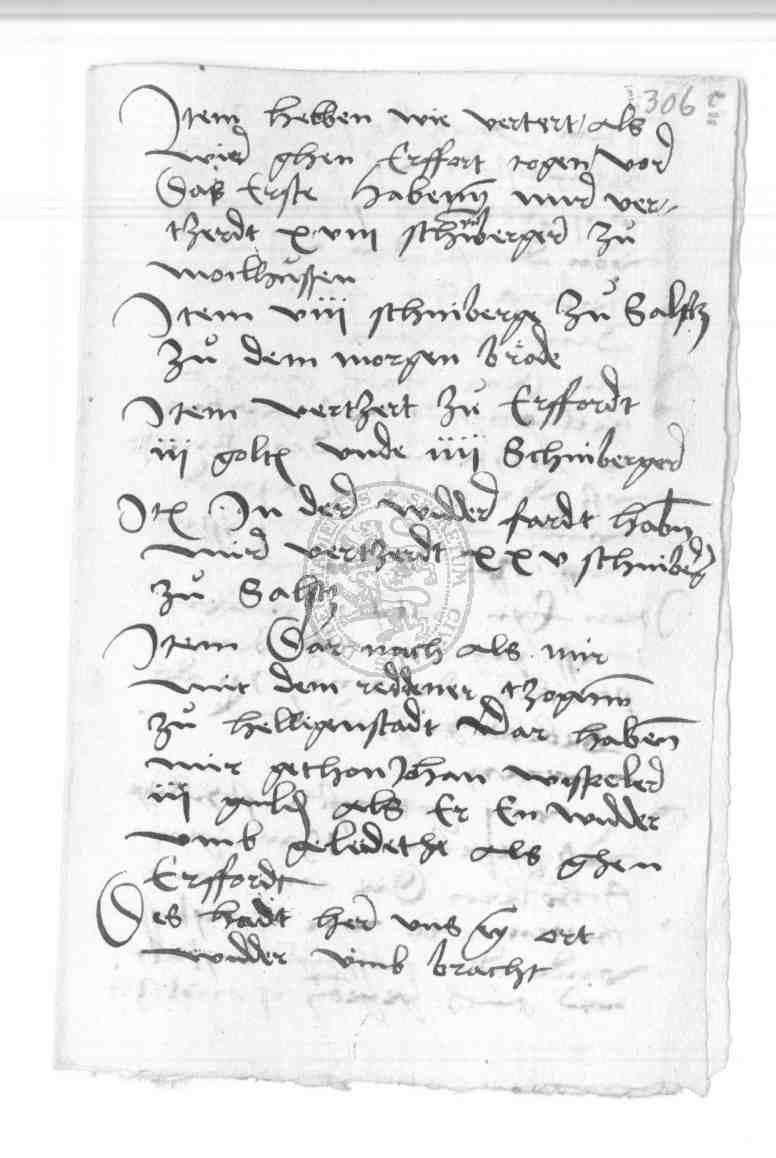 306 c
Item hebben wie vertert / als
wier ghen Erffort togen / vor
Das Erste habenn mir ver-
tzerdt xviii schniberger zu
molhussen
Item viii schniberge zu Saltz
zu dem morgen brode
Item vertzert zu Erffordt
iii golt unde iiii Schniberger
It In der widder fardt habn
mir vertzerdt xxv schniberg
zu Saltz
Item Dar nach als mir
mit dem reddener tzogenn
zu helligenstadt Dar habenn
mir gethon Johan wisseler
iii guld als Er En widder
umb geleidethe als ghen
Erffordt
Des hadt her uns ort
widder umb bracht